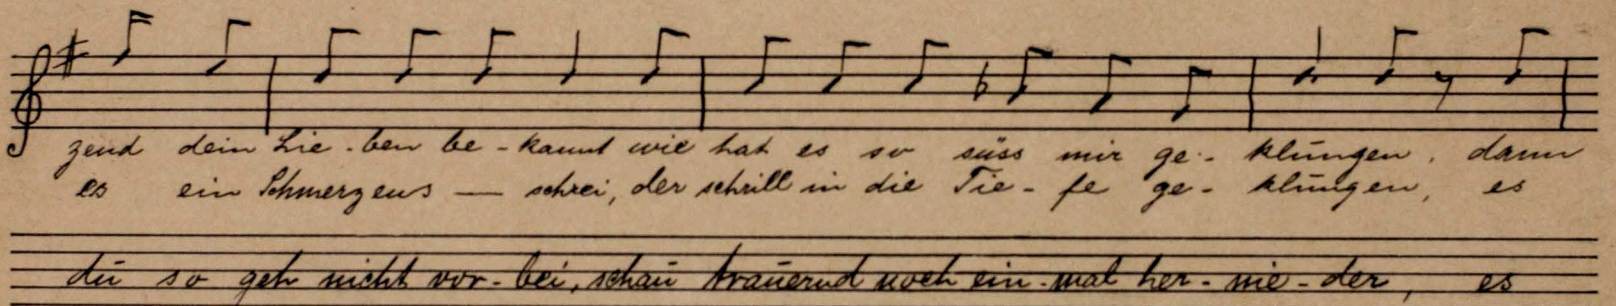 zend dein Lie-ben be-kannt wie hat es so süss mir ge-klungen, dann
es ein Schmerzens — schrei, der schrill in die Tie-fe ge-klungen, es
du so geh nicht vor-bei, schau trauernd noch ein-mal her-nie-der, es